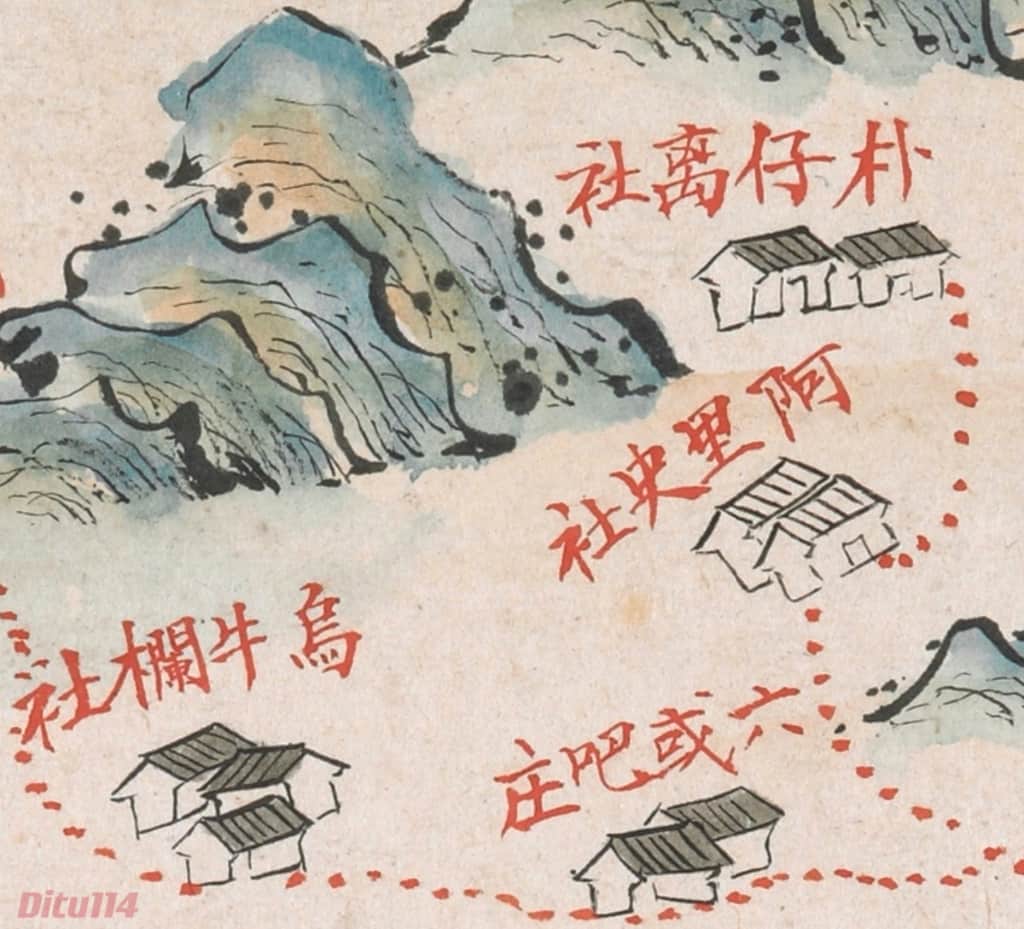 朴仔离社
阿里史社
烏牛欄社
六或吧庄
Ditu114